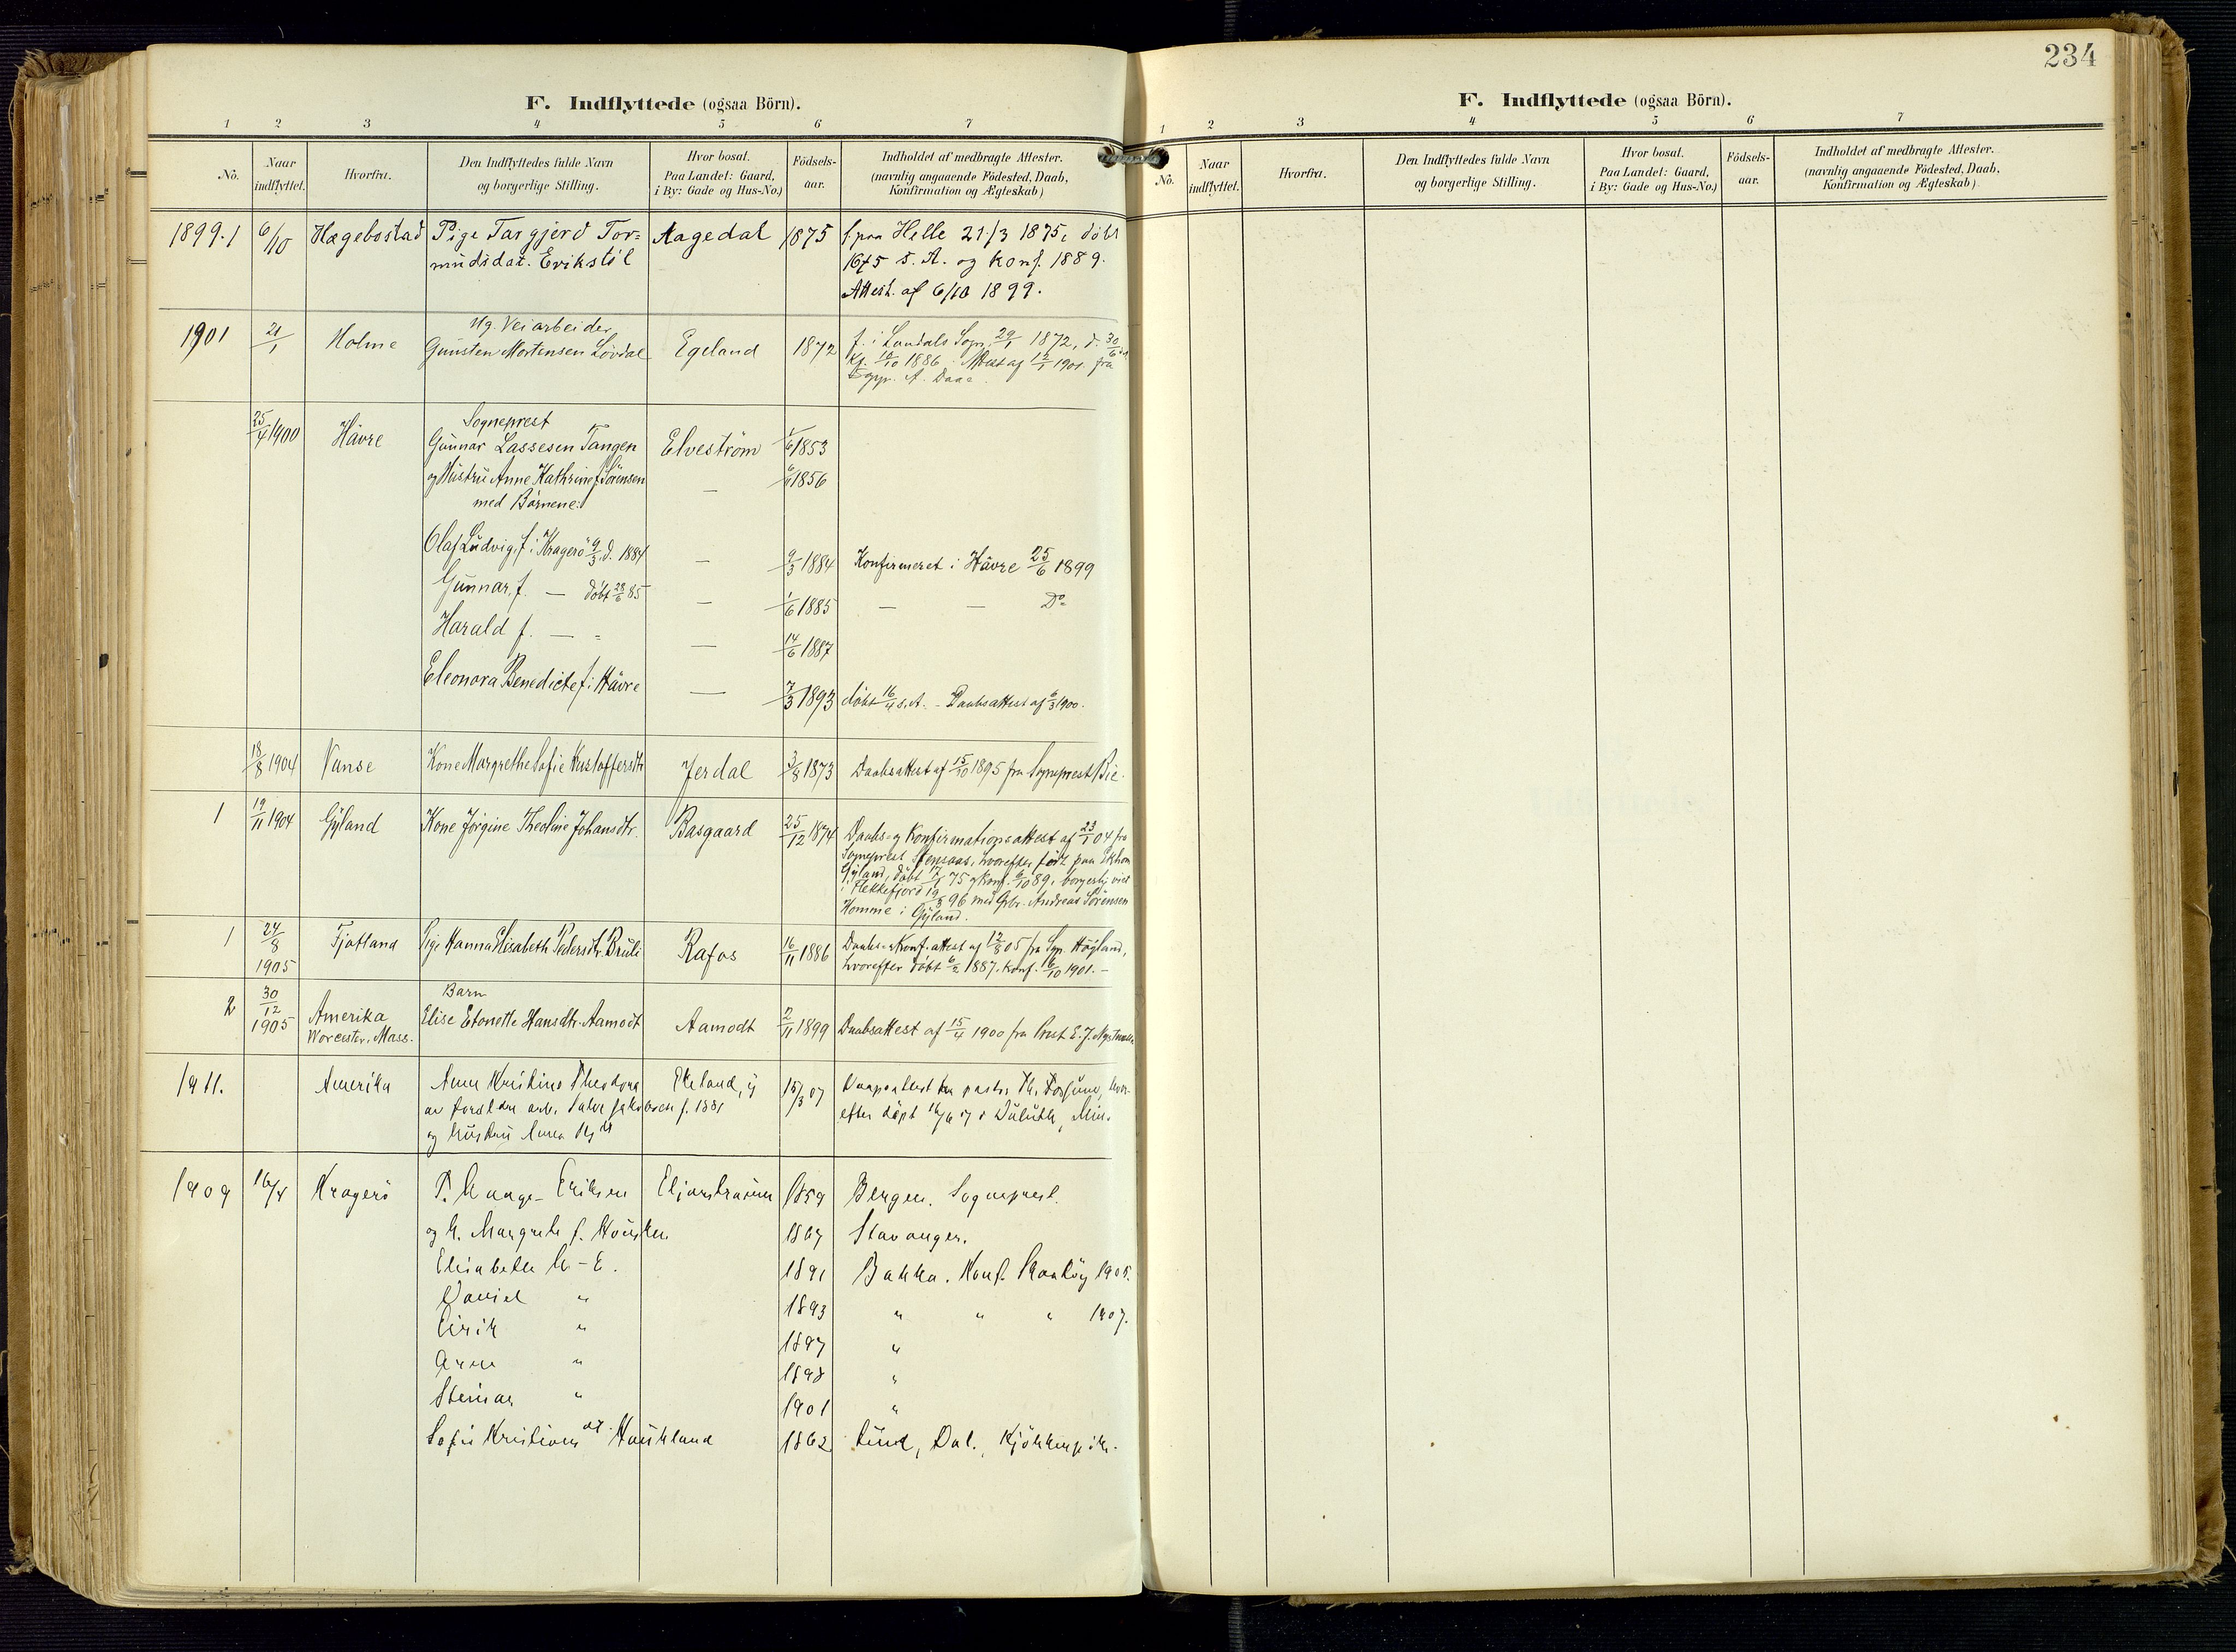 F. Indflyttede (ogsaa Börn).
1 2 3 4 5 6 7
No. Naar indflyttet. Hvorfra. Den Indflyttedes fulde Navn og borgerlige Stilling. Hvor bosat. Paa Landet: Gaard, i By: Gade og Hus-No.) Födsels-aar. Indholdet af medbragte Attester. (navnlig angaaende Födested, Daab, Konfirmation og Ægteskab)
1899. 1 6/10 Hægebostad Pige Targjerd Tor= Aagedal 1875 f. paa Helle 21/3 1875, döbt
mudsdat. Erikstöl s. A. og Konf. 1889.
Attest. af 6/10 1899.
Ug. Veiarbeider
1901 21/1 Holme Gunsten Mortensen Lövdal Egeland 1872 f. i Laudals Sogn 29/1 1872, d. 30/6
Kf. 10/10 1886. Attest af 12/1 1901 fra
Sogpr. A. Daae.
Sogneprest
25/4 1900 Hävre Gunnar Lassesen Tangen Elveström 1/6 1853
og Hustru Anne Kathrine f. Sörensen — 1856
med Börnene:
Olaf Ludvig, f. i Kragerö 9/3, d. 1884 — 9/3 1884 Konfirmeret i Hävre 25/6 1899
Gunnar, f. — döbt 28/6 85 — 1/6 1885 — — Do
Harald f. — — 14/6 1887
Eleonora Benedicte f. i Hävre — 7/3 1893 döbt 16/4 s. A. - Daabsattest af 6/3 1900.
18/8 1904 Vanse Kone Margrethe Sofie Kristoffersdtr Jerdal 3/8 1873 Daabsattest af 15/10 1895 fra Sogneprest Bie.
1 19/11 1904 Gyland Kone Jörgine Theoline Johansdtr. Basgaard 25/12 1874 Daabs- og Konfirmationsattest af 23/1 04 fra
Sogneprest Stensaas, hvorefter född paa
Gyland, döbt 17/1 75 og Konf. 6/10 89, borgerlig viet
i Flekkefjord 19/3 96 med Gbr. Andreas Sörensen
Homme i Gyland.
1 24/8 1905 Fjotland Pige Hanna Elisabeth Pedersdtr. Bruli Rafos 16/11 1886 Daabs- og Konf. attest af 12/8 05 fra Sgp. Högland,
hvorefter döbt 6/2 1887. Konf. 6/10 1901. —
Barn
2 30/12 1905 Amerika Worcester. Mass. Elise Etonette Hansdtr. Aamodt Aamodt 2/11 1899 Daabsattest af 15/4 1900 fra Prest E. J.
1911. Amerika Anna Kristine Theodora Ekeland, y 15/3 07 fra pastor Th. hvor-
av forældre arb. Jakobsen f. 1881 efter döpt 16/6 07 i Duluth, Min.
og hustru Anna
1909 16/4 Kragerö P. Hauge- Eriksen 1859 Bergen. Sogneprest.
og h. Margrete f. 1867 Stavanger.
Elisabeth H-E. 1891 Bakke. Konf. Skaatöy 1905.
Daniel " 1893 " " " 1907.
Eirik " 1897 "
Arne " 1898 "
Steinar " 1901 "
Sofie Kristians dt. Haukland 1862
234
F. Indflyttede (ogsaa Börn).
1 2 3 4 5 6 7
No. Naar indflyttet. Hvorfra. Den Indflyttedes fulde Navn og borgerlige Stilling. Hvor bosat. Paa Landet: Gaard, i By: Gade og Hus-No.) Födsels-aar. Indholdet af medbragte Attester. (navnlig angaaende Födested, Daab, Konfirmation og Ægteskab)